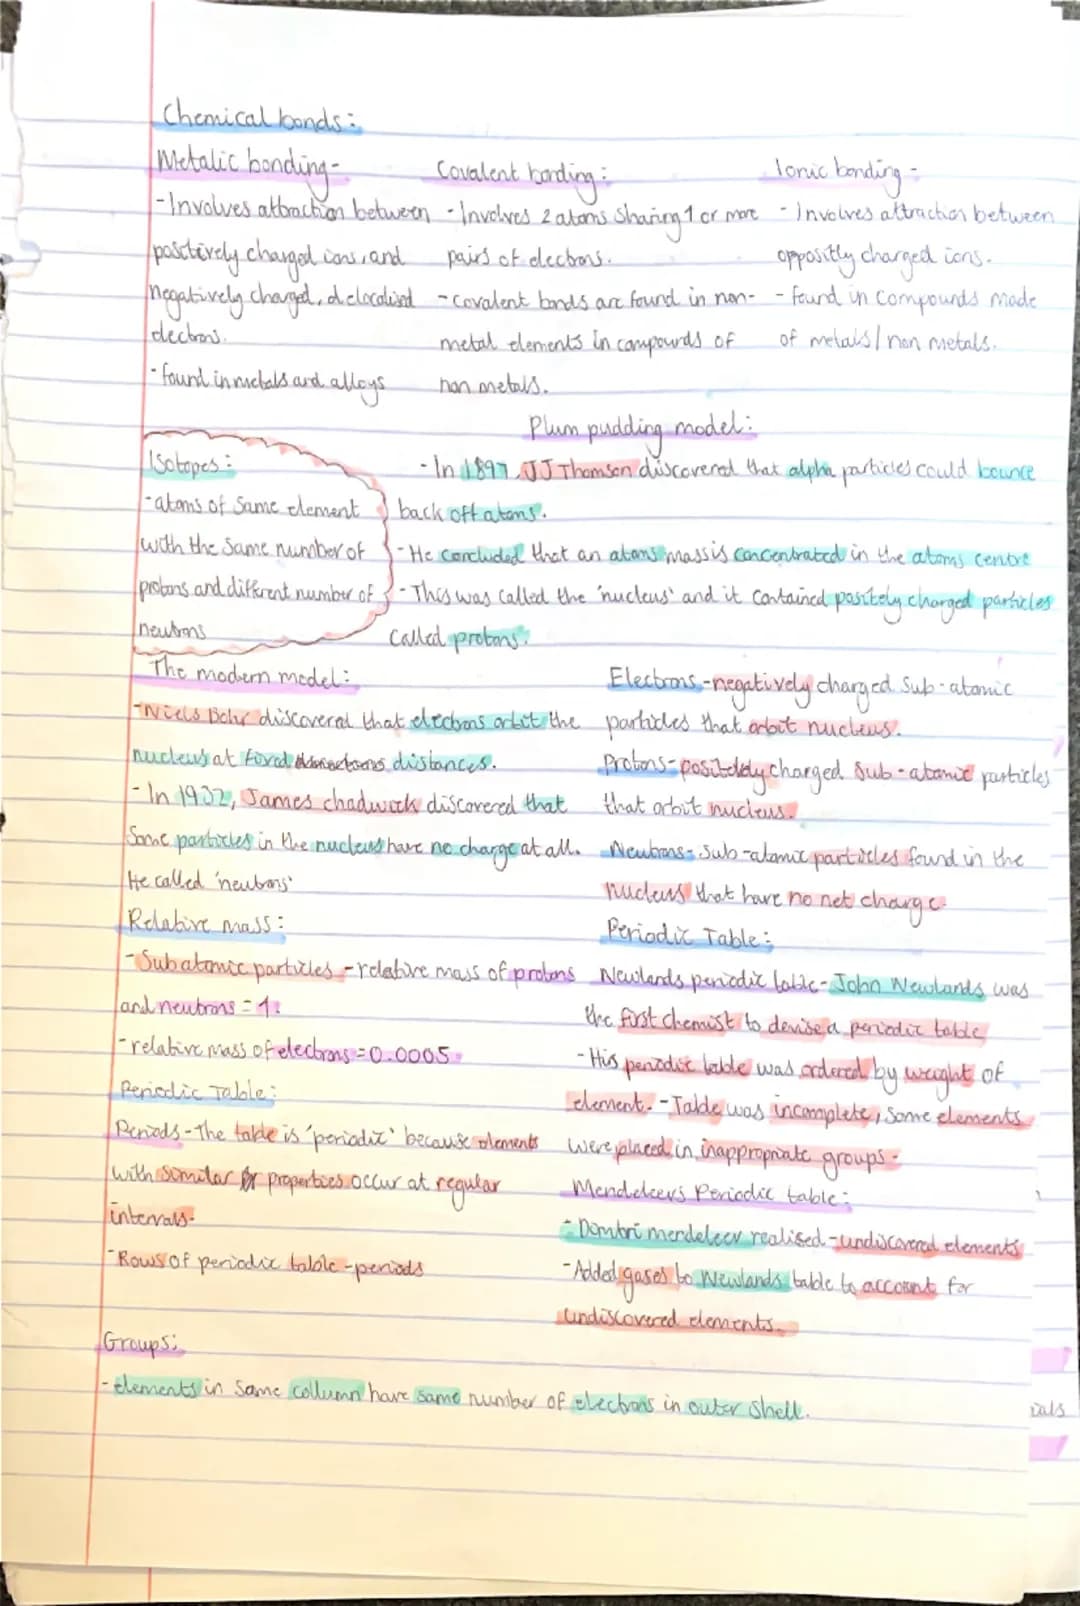 Chemical bonds:
Metalic bonding-
-Involves attraction between
positively charged ions, and
negatively charged, delocalised
electrons.
-found in metals and alloys
Covalent bonding:
-Involves 2 atoms sharing 1 or more
pairs of electrons.
-covalent bonds are found in non-
metal elements in compounds of
non metals.
Ionic bonding-
-Involves attraction between
oppositly charged ions.
-found in compounds made
of metals/non metals.
Isotopes:
-atoms of same element
with the same number of
protons and different number of
neutrons
Plum pudding model:
-In 1897, JJ Thomson discovered that alpha particles could bounce
back off atoms.
-He concluded that an atoms mass is concentrated in the atoms centre
-This was called the 'nucleus' and it contained positely charged particles
called protons.
The modern model:
-Niels Bohr discovered that electrons orbit the
nucleus at fixed distances.
-In 1932, James chadwick discovered that
some particles in the nucleus have no charge at all.
He called 'neutrons'
Electrons-negatively charged sub-atomic
particles that orbit nucleus.
Protons-positelely charged sub-atomic particles
that orbit nucleus.
Neutrons-sub-atomic particles found in the
nucleus that have no net charge.
Relative mass:
-Subatomic particles-relative mass of protons
and neutrons=1.
-relative mass of electrons=0.0005.
Periodic Table:
Periods-The table is 'periodic' because elements
with similar properties occur at regular
intervals.
-Rows of periodic table-periods
Periodic Table:
Newlands periodic table-John Newlands was
the first chemist to devise a periodic table
-His periodic table was ordered by weight of
element.-Table was incomplete, some elements
were placed in inappropriate groups-
Mendeleevs Periodic table:
-Dimitri mendeleev realised-undiscovered elements
-Added gases to Newlands table to account for
undiscovered elements.
Groups:
-elements in same collumn have same number of electrons in outer shell.